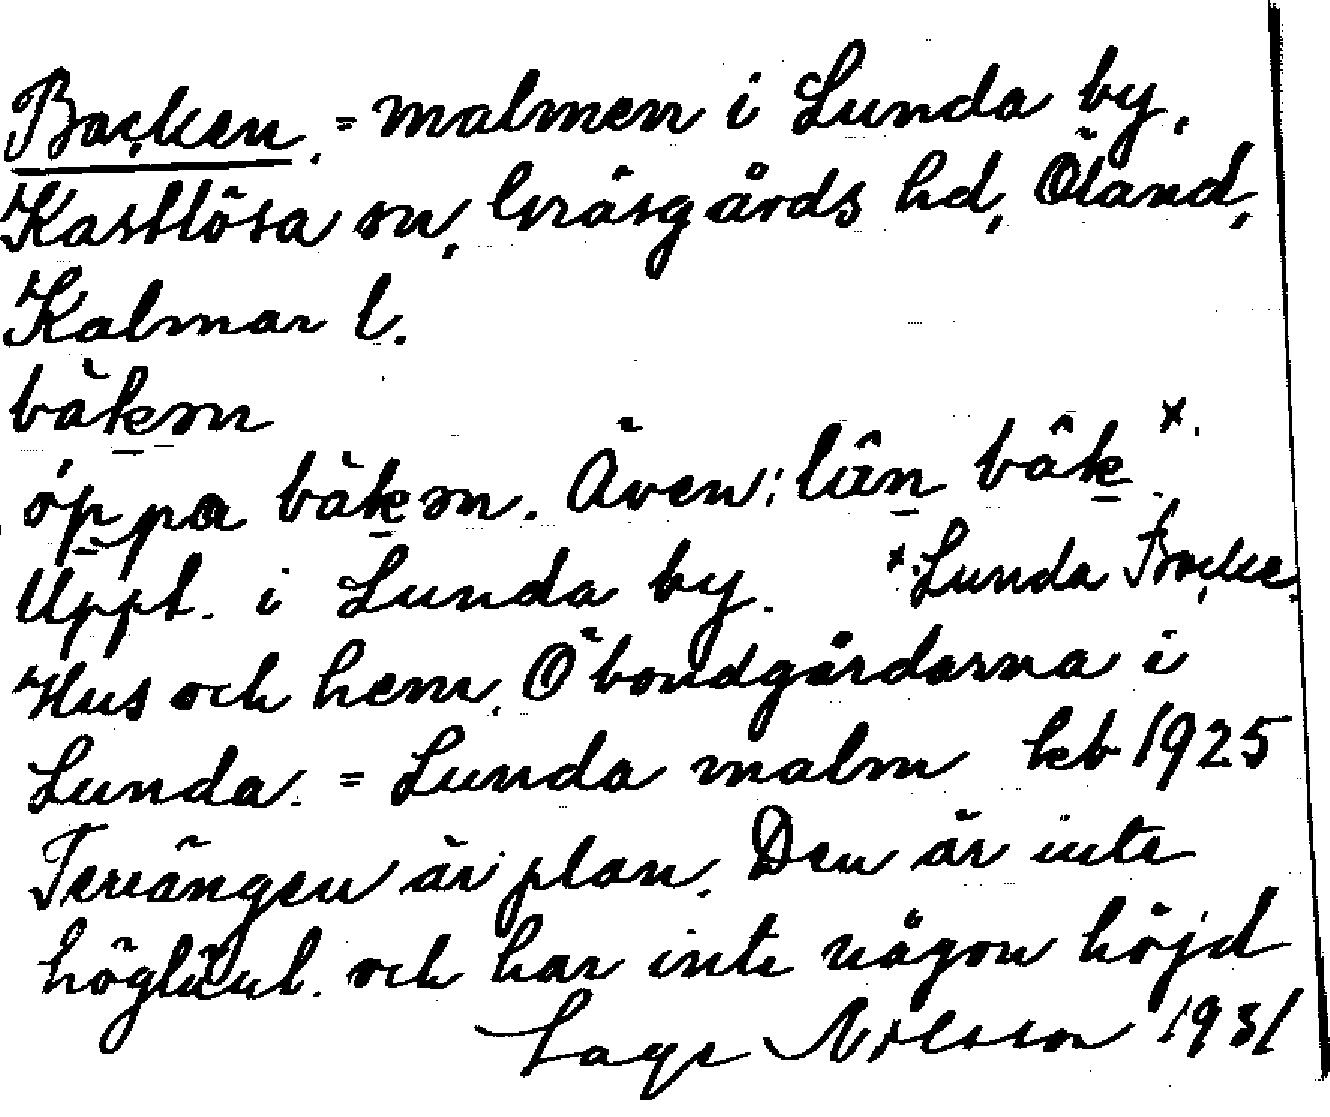 Backen. = malmen i Lunda by.
Kastlösa sn, Gräsgårds hd, Öland,
Kalmar l.
bàkɘn
óppa bàkɘn. Även: lûn bâk x.
Uppt. i Lunda by. x. Lunda Backe.
Hus och hem. Ö bondgårdarna i
Lunda. = Lunda malm keb 1925
Terrängen är plan. Den är inte
höglänt. och har inte någon höjd
Lage Nilsson 1931